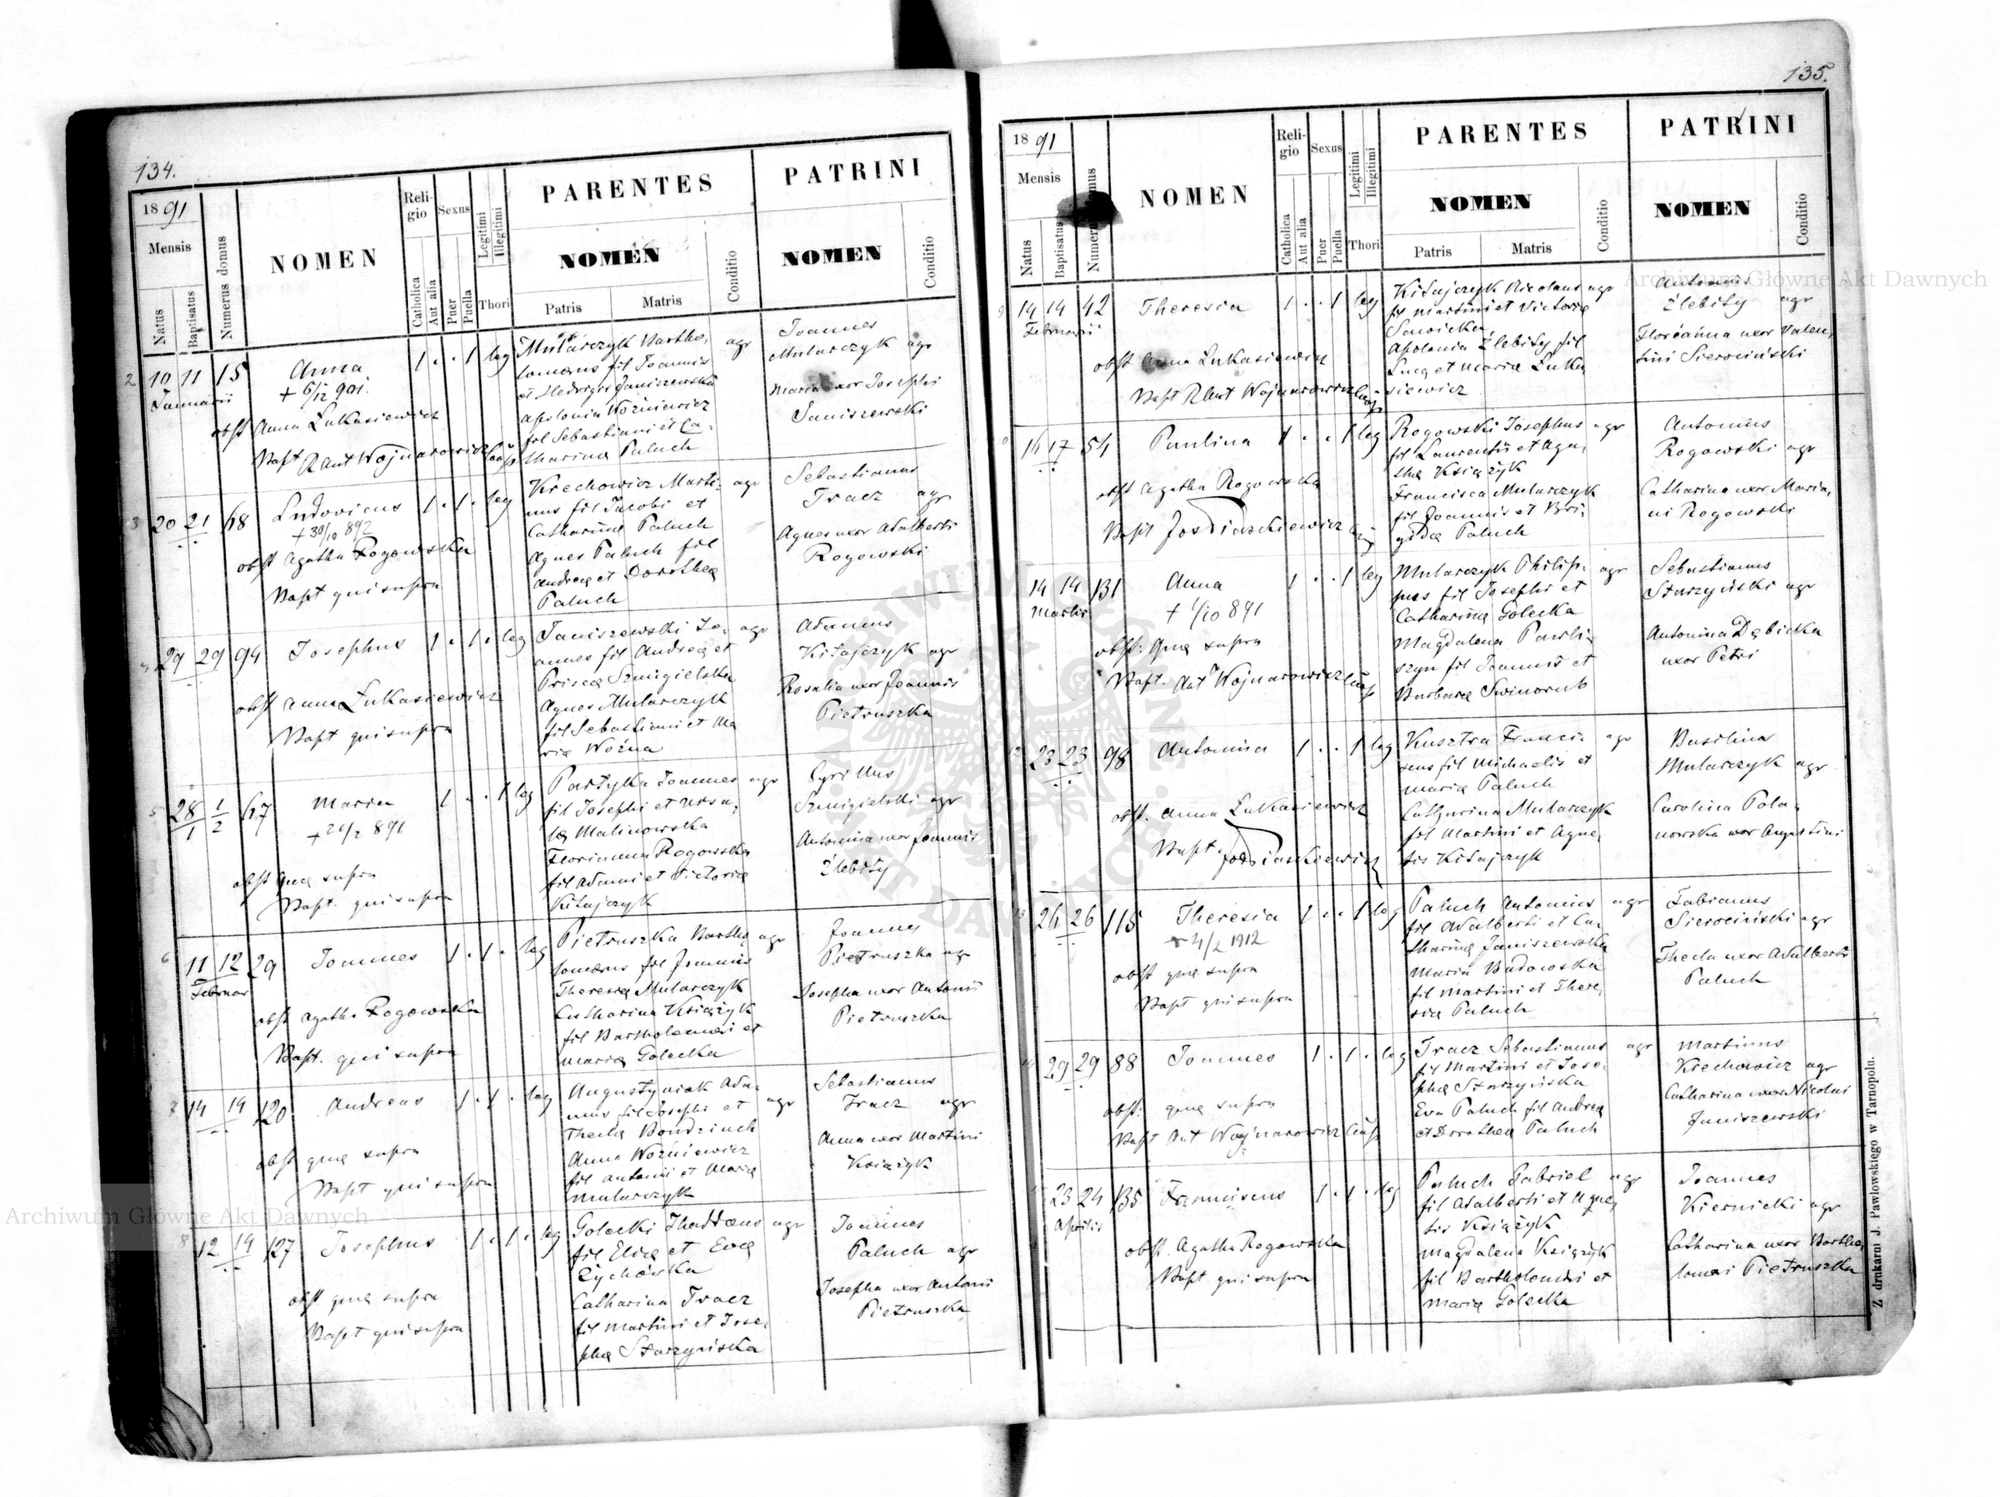 134.
1891
Mensis
Natus
Baptisatus
Numerus domus
NOMEN
Religio
Catholica
Aut alia
Sexus
Puer
Puella
Legitimi
Illegitimi
Thori
PARENTES
NOMEN
Patris
Matris
Conditio
PATRINI
NOMEN
Conditio
2 10 11 15 Anna 1 . . 1 leg
Januarii
+ 6/12 901.
obst Anna Łukasiewicz
Bapt R Ant Wojnarowicz
Mularczyk Bartho- agr
lomeus fil Joannis
et Hedvigis Janiszewska
Apolonia Woźniewicz
fil Sebastiani et Ca-
tharina Paluch
Joannes
Mularczyk agr
Maria uxor Josephi
Janiszewski
3 20 21 68 Ludovicus 1 . 1 . leg
+ 30/10 892
obst Agatha Rogowska
Bapt qui supra
Krechowicz Marti- agr
nus fil Jacobi et
Catharina Paluch
Agnes Paluch fil
Andrea et Dorothea
Paluch
Sebastianus
Tracz agr
Agnes uxor Adalberti
Rogowski
4 29 29 94 Josephus 1 . 1 . leg
obst Anna Łukasiewicz
Bapt qui supra
Janiszewski Jo- agr
annes fil Andrea et
Prisca Szmigielska
Agnes Mularczyk
fil Sebastiani et Ma
ria Woźna
Adamus
Kitajczyk agr
Rosalia uxor Joannis
Pietruszka
5 28/1 1/2 67 Maria 1 . . 1 leg
+ 21/2 891
obst quæ supra
Bapt. qui supra
Partyka Joannes agr
fil Josephi et Ursu-
la Malinowska
Floriana Rogowska
fil Adami et Victoria
Kitajczyk
Cyrillus
Szmigielski agr
Antonina uxor Joannis
Źlebity
6 11 12 29 Joannes 1 . 1 . leg
Februar
obst Agatha Rogowska
Bapt. qui supra
Pietruszka Bartho agr
lomæus fil Joannis
Theresia Mularczyk
Catharina Książyk
fil Bartholomei et
Maria Golecka
Joannes
Pietruszka agr
Josepha uxor Antonii
Pietruszka
7 14 14 120 Andreas 1 . 1 . leg
obst quæ supra
Bapt qui supra
Augustyniak Ada- agr
mus fil Josephi et
Thecla Bondziuch
Anna Woźniewicz
fil Antonii et Maria
Mularczyk
Sebastianus
Tracz agr
Anna uxor Martini
Książyk
8 12 14 127 Josephus 1 . 1 . leg
obst quæ supra
Bapt qui supra
Golecki Thaddæus agr
fil Elia et Eva
Cychowska
Catharina Tracz
fil Martini et Jose-
pha Starzyńska
Joannes
Paluch agr
Josepha uxor Antonii
Pietruszka
135.
1891
Mensis
Natus
Baptisatus
Numerus domus
NOMEN
Religio
Catholica
Aut alia
Sexus
Puer
Puella
Legitimi
Illegitimi
Thori
PARENTES
NOMEN
Patris
Matris
Conditio
PATRINI
NOMEN
Conditio
9 14 14 42 Theresia 1 . . 1 leg
Februarii
obst Anna Łukasiewicz
Bapt R Ant Wojnarowicz
Kitajczyk Nicolaus agr
fil Martini et Victoria
Sawicka
Apolonia Źlebity fil
Luca et Maria Łuka
siewicz
Antonius
Źlebity agr
Floriana uxor Valen-
tini Sierociński
16 17 54 Paulina 1 . . 1 leg
obst Agatha Rogowska
Bapt Jos Diaszkiewicz
Rogowski Josephus agr
fil Laurentii et Aga-
tha Książyk
Francisca Mularczyk
fil Joannis et Bri-
gida Paluch
Antonius
Rogowski agr
Catharina uxor Maria-
ni Rogowski
14 14 131 Anna 1 . . 1 leg
Martii
+ 1/10 891
obst: quæ supra
Bapt. Ant Wojnarowicz
Mularczyk Philip- agr
pus fil Josephi et
Catharina Golecka
Magdalena Pawli-
szyn fil Joannis et
Barbara Swinorub
Sebastianus
Starzyński agr
Antonina Dębicka
uxor Petri
23 23 98 Antonina 1 . . 1 leg
obst. Anna Łukasiewicz
Bapt. Jos Diaszkiewicz
Kusztra Franci- agr
scus fil Michaelis et
Maria Paluch
Catharina Mularczyk
fil Martini et Agne-
tis Kitajczyk
Basilius
Mularczyk agr
Carolina Pola-
nowska uxor Augustini
13 26 26 115 Theresia 1 . . 1 leg
+ 4/2 1912
obst quæ supra
Bapt qui supra
Paluch Antonius agr
fil Adalberti et Ca-
tharina Janiszewska
Maria Budowska
fil Martini et There-
sia Paluch
Fabianus
Sierociński agr
Thecla uxor Adalberti
Paluch
29 29 88 Joannes 1 . 1 . leg
obst: quæ supra
Bapt Ant Wojnarowicz
Tracz Sebastianus agr
fil Martini et Jose-
pha Starzyńska
Eva Paluch fil Andrea
et Dorothea Paluch
Martinus
Krechowicz agr
Catharina uxor Nicolai
Janiszewski
23 24 135 Franciscus 1 . 1 . leg
Aprilis
obst. Agatha Rogowska
Bapt qui supra
Paluch Gabriel agr
fil Adalberti et Agne-
tis Książyk
Magdalena Książyk
fil Bartholomæi et
Maria Golecka
Joannes
Kiernicki agr
Catharina uxor Bartho-
lomæi Pietruszka
Z drukarni J. Pawlowskiego w Tarnopolu.
Archiwum Główne Akt Dawnych
Archiwum Główne Akt Dawnych
ARCHIWUM GŁÓWNE AKT DAWNYCH